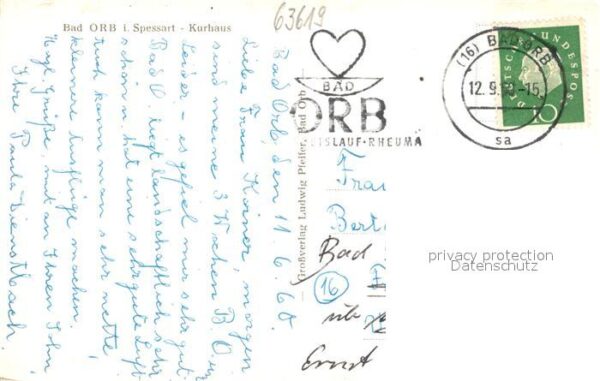 Bad ORB i. Spessart - Kurhaus
63619
Bad Orb, den 11.6.60
Liebe Frau Körner, morgen
sind meine 3 Wochen B O um
leider - es gefiel mir sehr gut.
Bad O liegt landschaftlich sehr
schön, hat eine sehr gute Luft
auch kann man sehr nette,
kleine Ausflüge machen.
Hzl. Grüße, mit an Ihren Sohn
Ihre Paula Dienstbach.
Großverlag Ludwig Pfeifer, Bad Orb
BAD
ORB
EISLAUF·RHEUMA
(16) BAD ORB
12.9. -15
sa
DEUTSCHE BUNDESPOS
10
Frau
Bert
Bad
16
üb
Ernst
privacy protection
Datenschutz